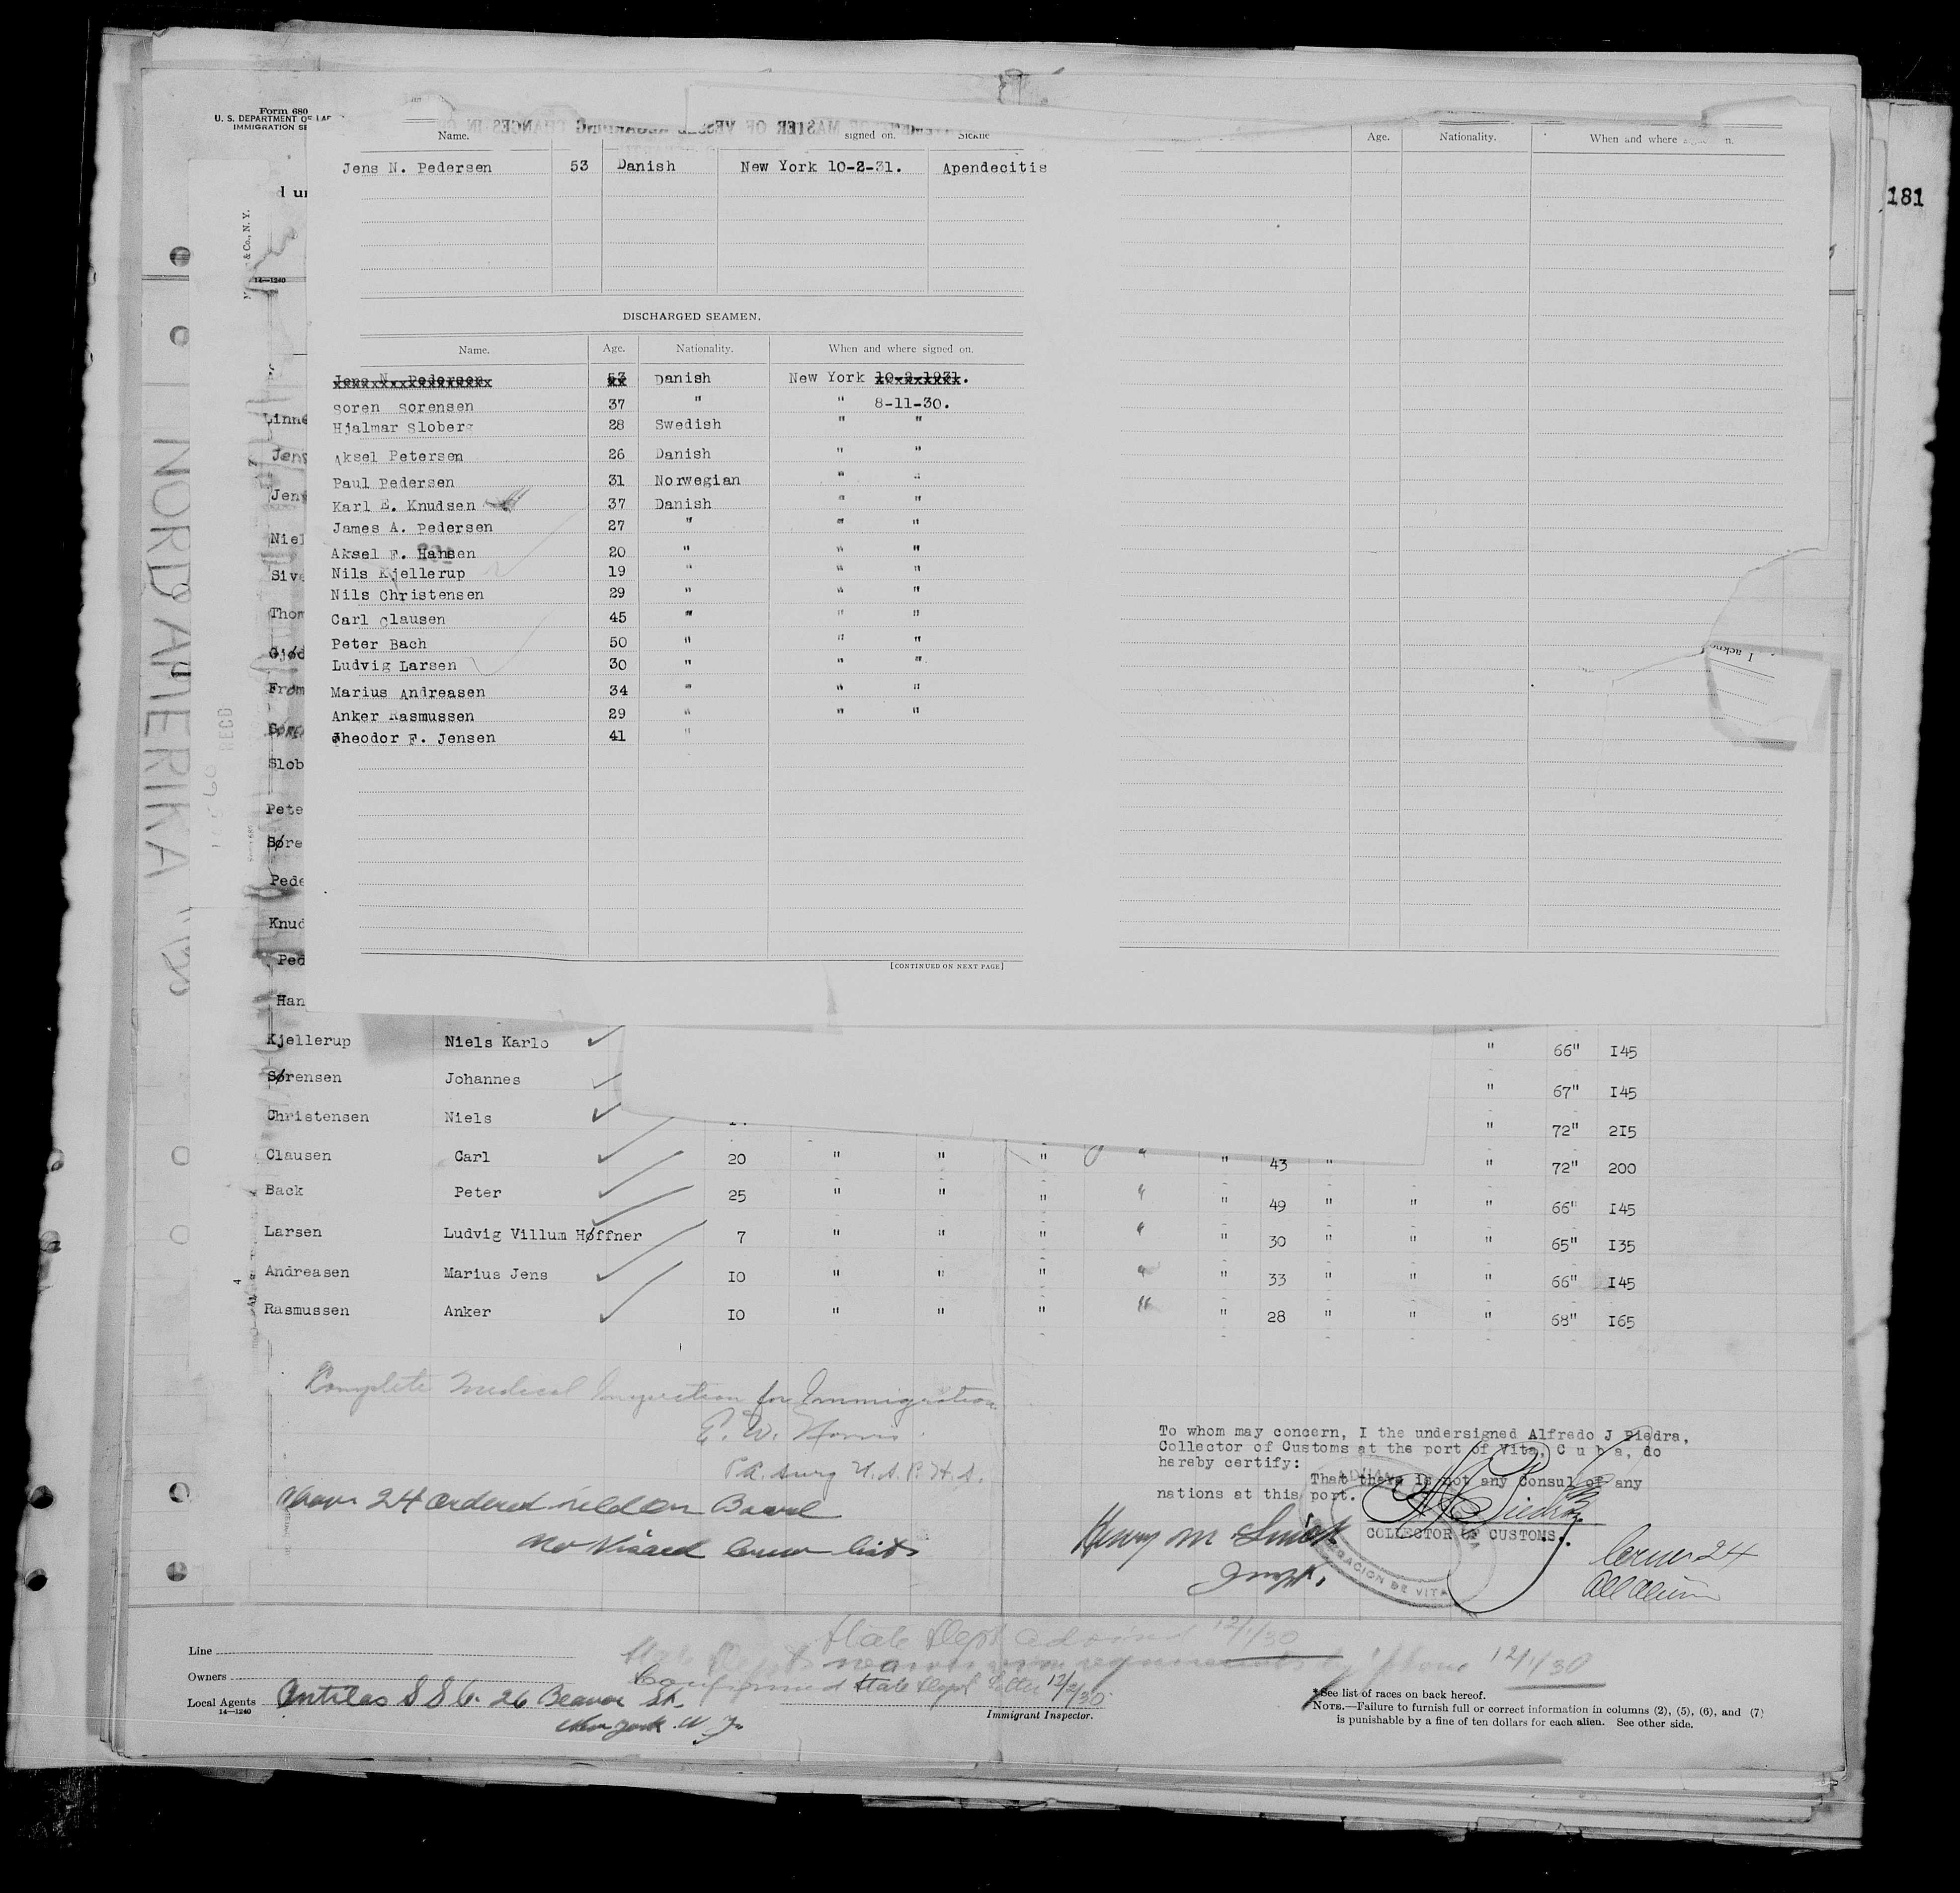 Form 680
U. S. DEPARTMENT OF
IMMIGRATION
181
Name. signed on.
Jens N. Pedersen 53 Danish New York 10-2-31. Apendecitis
Age. Nationality. When and where
DISCHARGED SEAMEN.
Name. Age. Nationality. When and where signed on.
Jens N. Pedersen 53 Danish New York 10-2-1931.
Soren Sorensen 37 " " 8-11-30.
Hjalmar Sloberg 28 Swedish " "
Aksel Petersen 26 Danish " "
Paul Pedersen 31 Norwegian " "
Karl E. Knudsen 37 Danish " "
James A. Pedersen 27 " " "
Aksel F. Hansen 20 " " "
Nils Kjellerup 19 " " "
Nils Christensen 29 " " "
Carl Clausen 45 " " "
Peter Bach 50 " " "
Ludvig Larsen 30 " " "
Marius Andreasen 34 " " "
Anker Rasmussen 29 " " "
Theodor F. Jensen 41 "
[CONTINUED ON NEXT PAGE]
NORDAMERIKA
RECD
& Co., N. Y.
14—1240
Jens
Thom
From
Slob
Pete
Søre
Pede
Knud
Ped
Han
Kjellerup Niels Karlo " 66" I45
Sørensen Johannes " 67" I45
Christensen Niels " 72" 2I5
Clausen Carl 20 " " " " " 43 " " 72" 200
Back Peter 25 " " " " " 49 " " " 66" I45
Larsen Ludvig Villum Høffner 7 " " " " " 30 " " " 65" I35
Andreasen Marius Jens I0 " " " " " 33 " " " 66" I45
Rasmussen Anker I0 " " " " " 28 " " " 68" I65
Complete Medical Inspection for Immigration
E. W. Norris
P.A. Surg U.S.P.H.S.
Above 24 ordered held on Board
No Visaed Crew list
To whom may concern, I the undersigned Alfredo J Piedra,
Collector of Customs at the port of Vita, C u b a, do
hereby certify:
That there is not any Consul of any
nations at this port.
COLLECTOR OF CUSTOMS.
ADUANA
DE VITA
Henry M
Inspt.
Crew 24
All Aliens
State Dept advised 12/1/30
phone 12/1/30
Confirmed State Dept Letter 12/2/30
Line
Owners
Local Agents Antilas S S Co. 26 Beaver St.
New York. N. Y.
14—1240
Immigrant Inspector.
*See list of races on back hereof.
NOTE.—Failure to furnish full or correct information in columns (2), (5), (6), and (7)
is punishable by a fine of ten dollars for each alien. See other side.